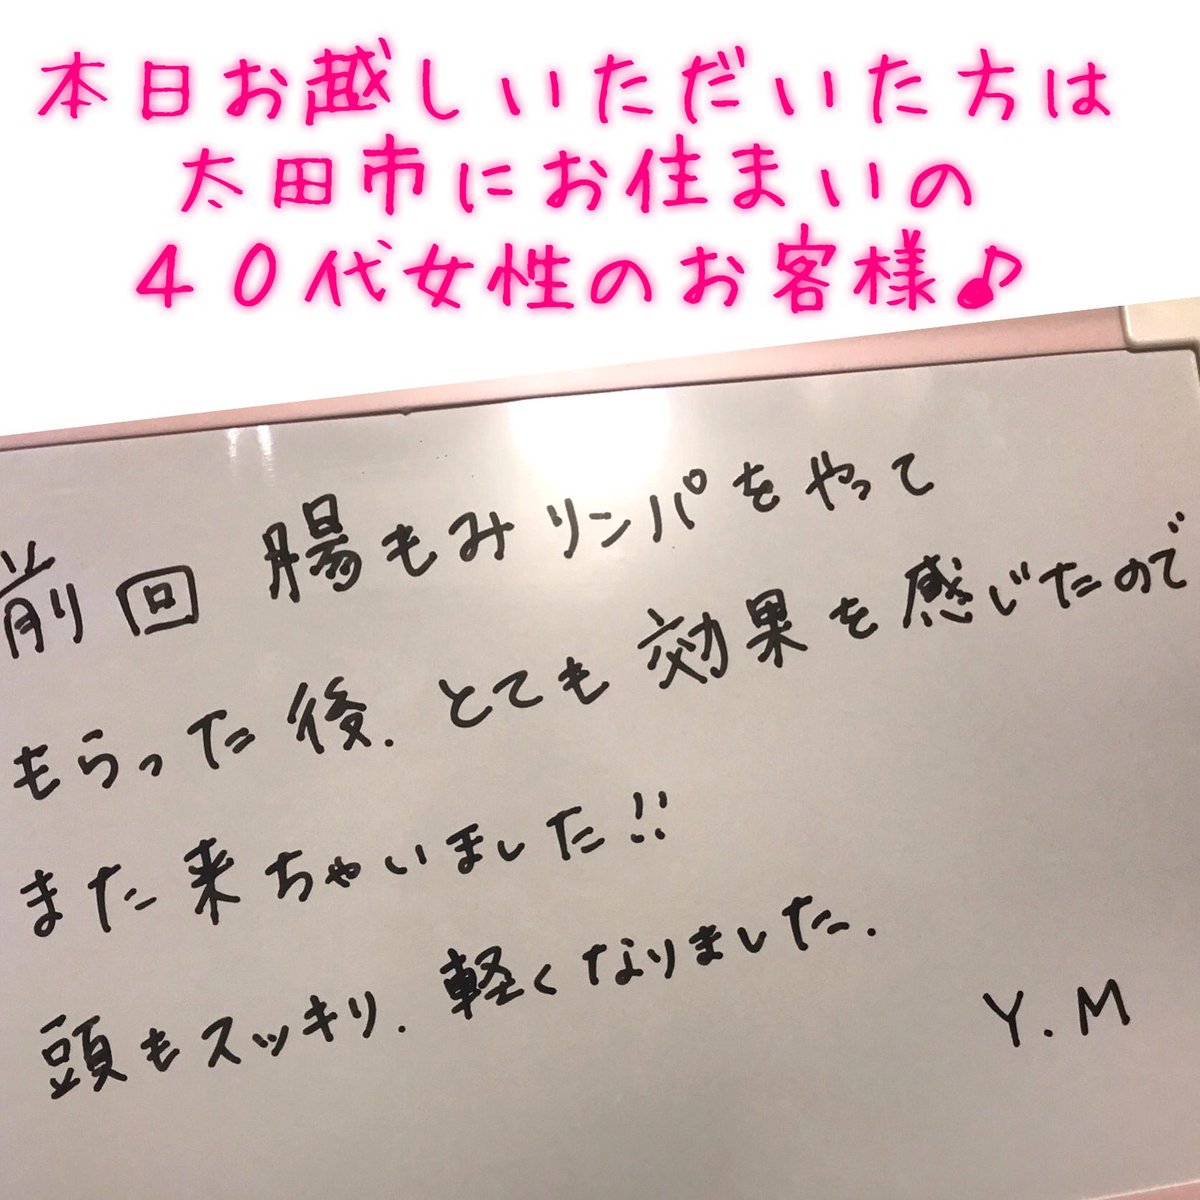 本日お越しいただいた方は
太田市にお住まいの
４０代女性のお客様♪
前回 腸もみリンパをやって
もらった後、とても効果を感じたので
また来ちゃいました!!
頭もスッキリ、軽くなりました.
Y.M